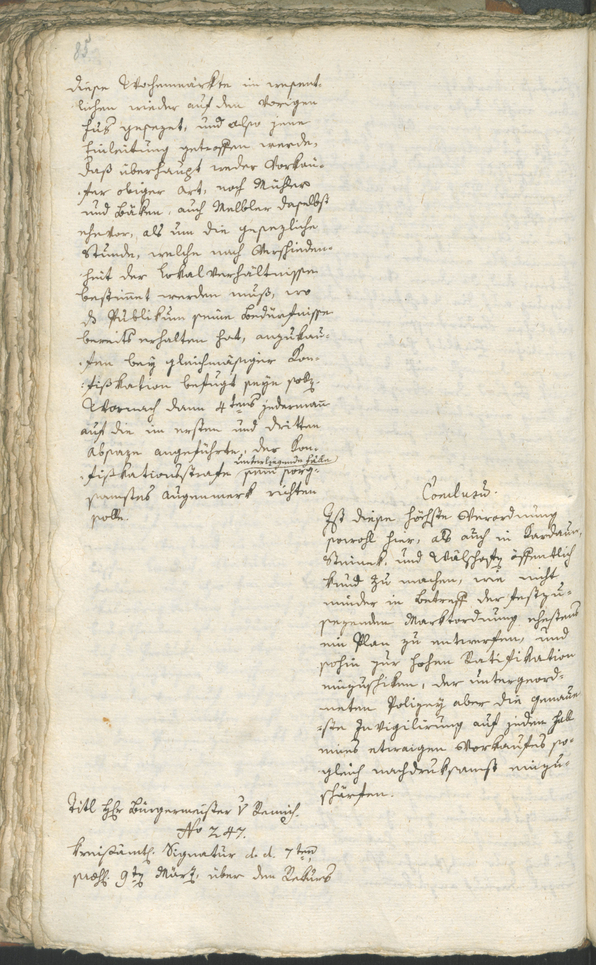 85
diese Wochenmärkte im wesent-
lichen wieder auf den vorigen
Fus gesezet, und also jene
Einleitung getroffen werde,
daß überhaupt weder Vorkäu-
fer obiger Art, noch Mühler
und Bäken, auch Melbler daselbst
ehevor, als um die gesezliche
Stunde, welche nach Verschieden-
heit der Lokalverhältnisse
bestimmt werden muß, wo
das Publikum seine Bedürfnisse
bereits erhalten hat, anzukau-
fen bey gleichmäsiger Kon-
fiskation befugt seyn soll.
Wornach dann 4tens jedermann
auf die im ersten und dritten
Absaze angeführte, der Kon-
fiskationsstrafe unterliegende Fälle sein sorg-
samstes Augenmerk richten
solle.
Conclusum.
Ist diese höchste Verordnung
sowohl hier, als auch in Kardaun,
Steinek, und Wälschofen öffentlich
kund zu machen, wie nicht
minder in Betreff der festzu-
sezenden Marktordnung ehestens
ein Plan zu entwerfen, und
sohin zur hohen Ratifikation
einzuschiken, der untergeord-
neten Polizey aber die genaue-
ste Invigilirung auf jeden Fall
eines etwaigen Vorkaufes so-
gleich nachdruksamst einzu-
schärfen.
Titl Herr Bürgermeister v Remich.
No 247.
Kreisämtl. Signatur d. d. 7ten
praes. 9ten März, über den Rekurs